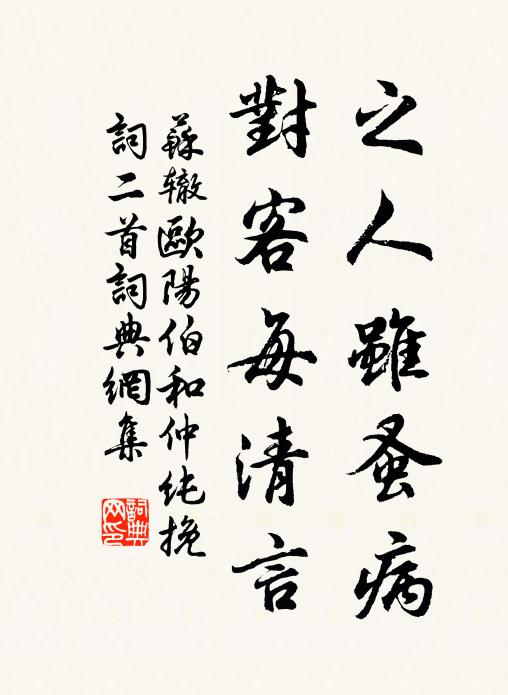 之人雖蚤病
對客每清言
蘇辙歐陽伯和仲纯挽
詞二首詞典網集
詞典网印